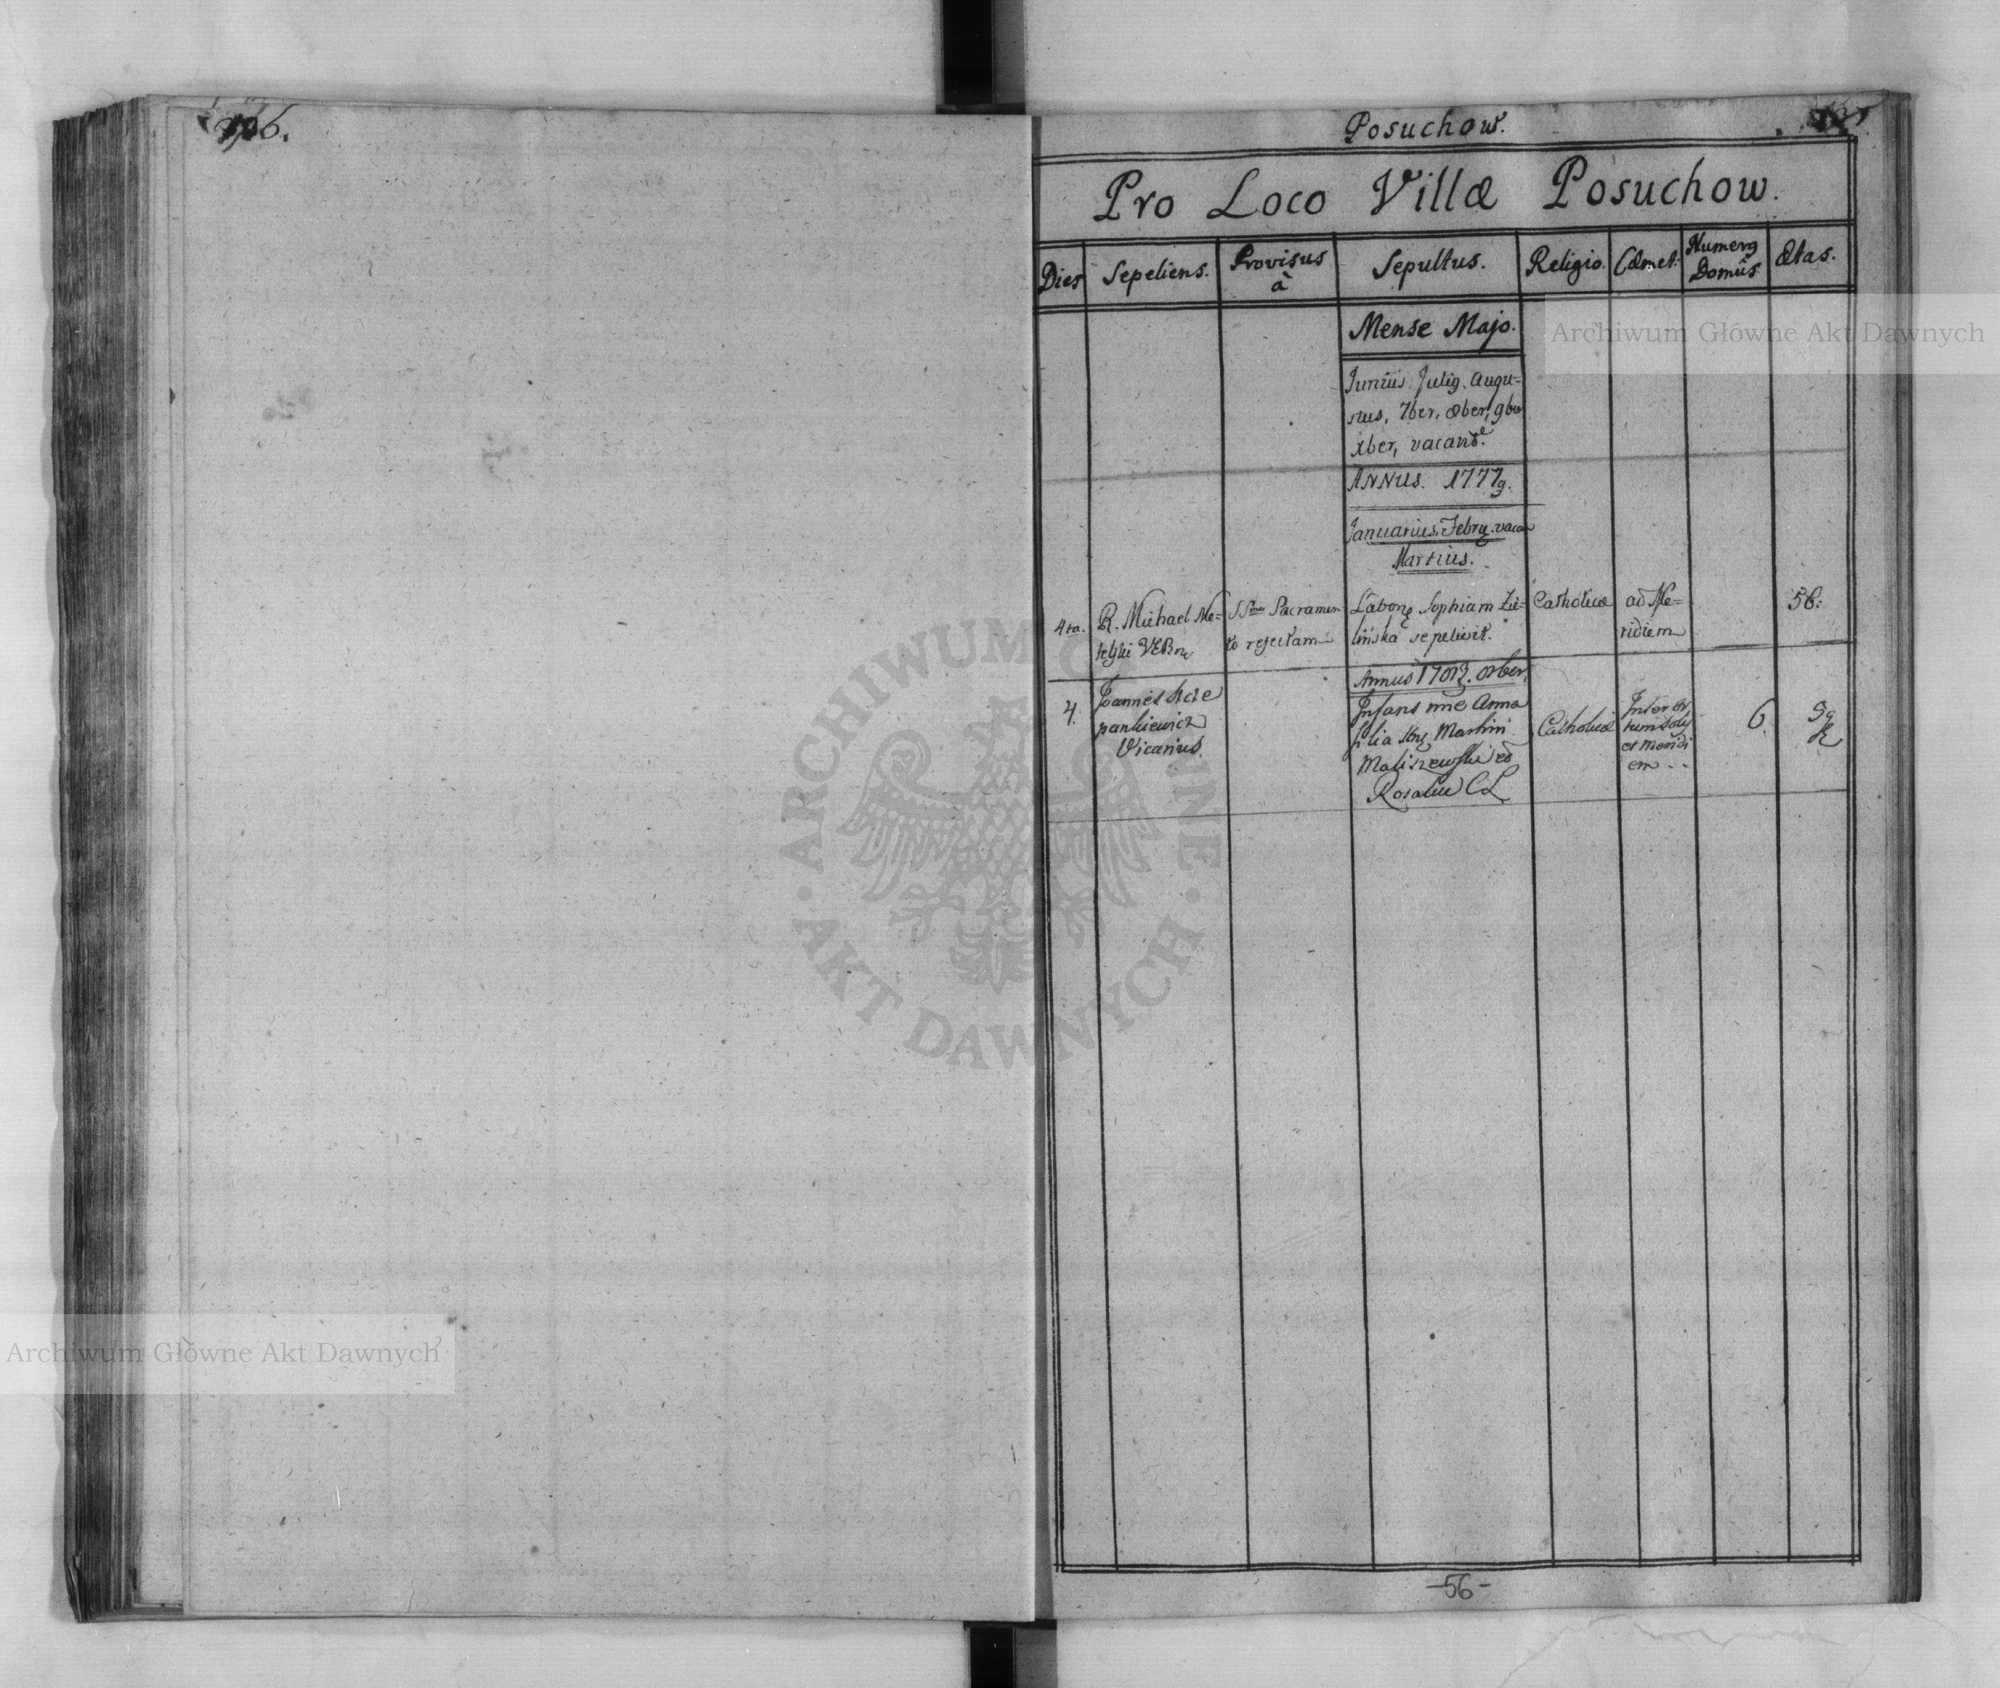 196.
Posuchow.
Pro Loco Villæ Posuchow.
Dies
Sepeliens.
Provisus
à
Sepultus.
Religio.
Cœmet.
Numerg
Domûs
Ætas.
Mense Majo.
Junius. Julig. Augu=
stus, 7ber, 8ber, 9ber
Xber, vacant.
ANNUS. 1777g.
Januarius, Febrg. vaca
Martius.
4ta.
R. Michael Me=
telski
SSmo Sacramen
to refectam
Sophiam Zie=
linska sepelivit.
Catholicæ
ad Me=
ridiem
56.
Annus
4.
Joannes Scze
pankiewicz
Vicarius.
Infans nne Anna
filia Martini
Maliszewski et
Rosaliæ CL
Catholicæ
Inter Or
tum Solis
et Meridi
em --
6.
-56-
ARCHIWUM GŁÓWNE · AKT DAWNYCH ·
Archiwum Główne Akt Dawnych
Archiwum Główne Akt Dawnych